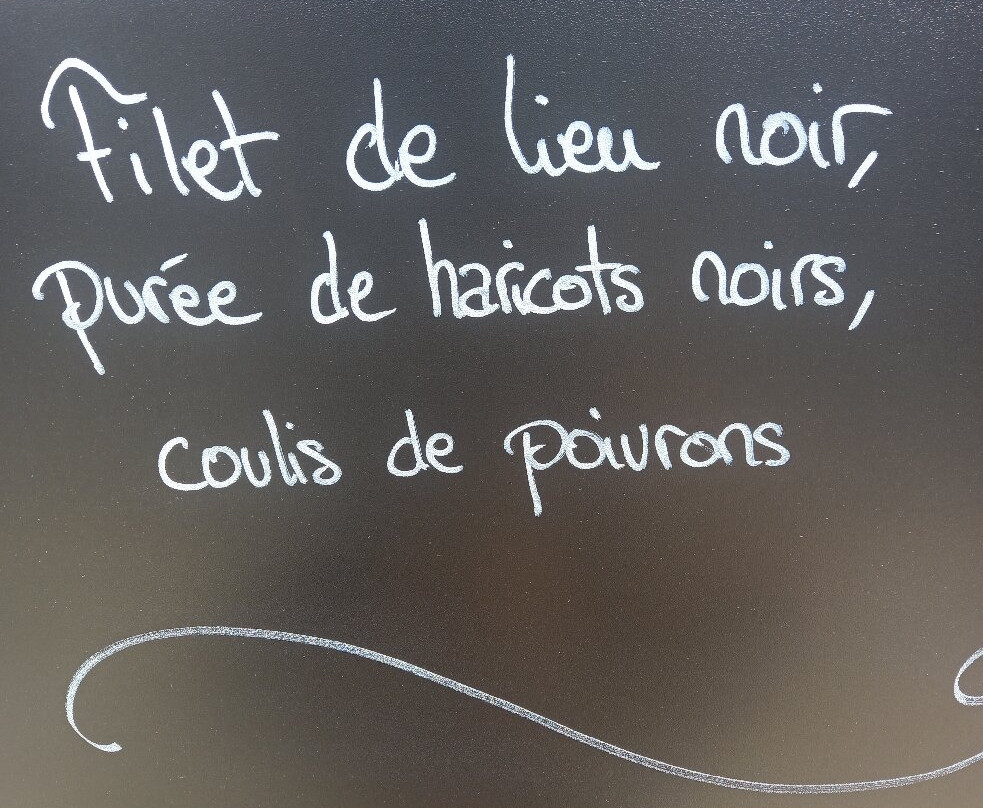 Filet de lieu noir,
purée de haricots noirs,
coulis de poivrons